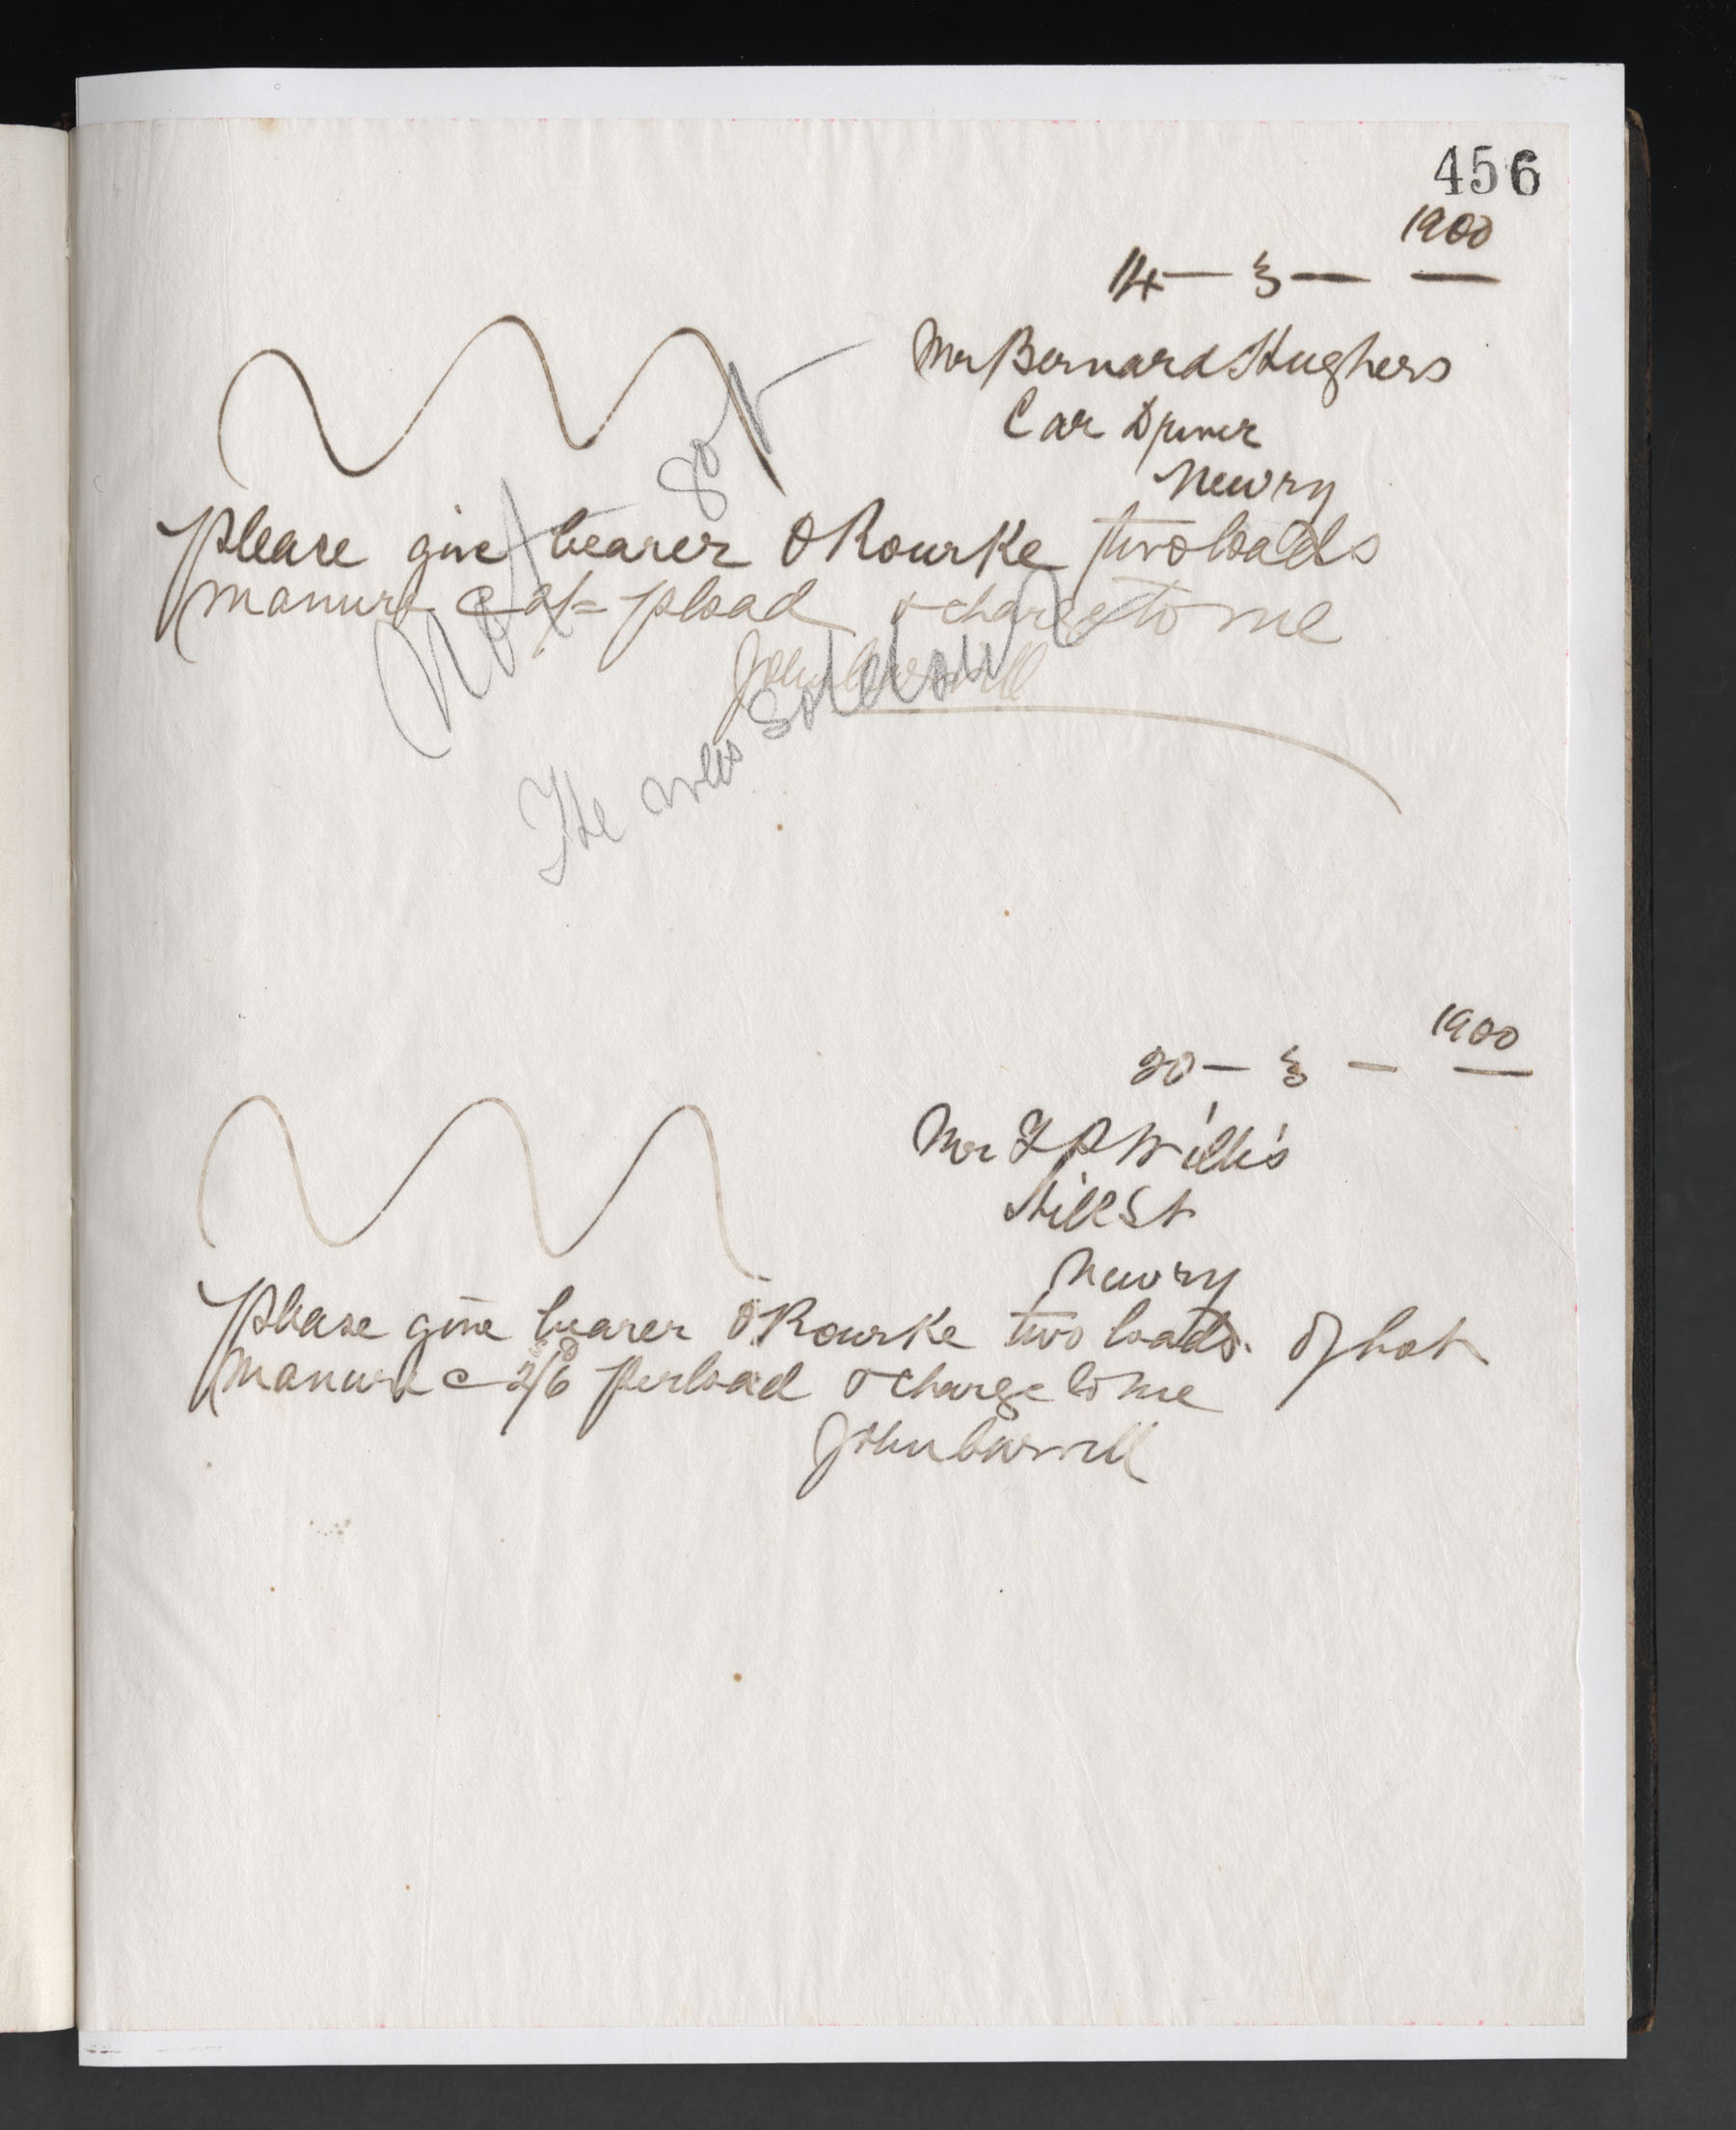 456
1900
14 — 3 —
Mr Bernard Hughes
Car Driver
Newry
Please give bearer O Rourke two loads
manure @ 2/= p load & charge to me
John
Not got
The was sold out
1900
20 — 3 —
Mr F P Willis
Hill St
Newry
Please give bearer O Rourke two loads of hot
manure @ 2/6 per load & charge to me
John